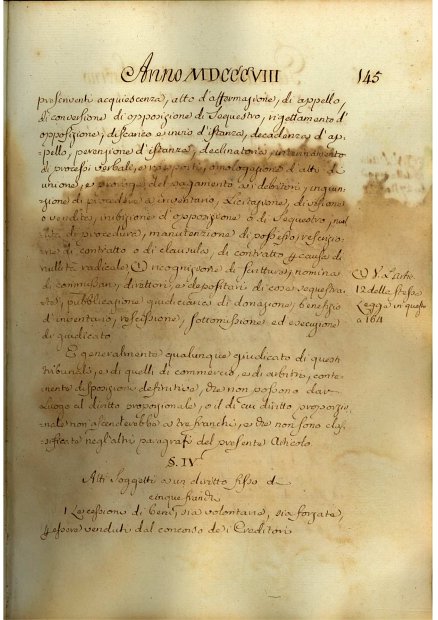 Anno MDCCCVIII 145
presenventi acquiescenza, atto d'affermazione, di appello,
di conversione di opposizione di Sequestro, rigettamento d'
opposizione, discarico e rinvio d'istanza, decadenza d'ap-
pello, perenzione d'istanza, declinatoria, internamento
di processi verbale, e rapporti, omologazione d'atti di
unione, e proroga del pagamento ai debitori, ingiun-
zione di procedere a inventario, licitazione, divisione
o vendita, inibizione d'opposizione o di Sequestro, nul-
lità di procedura, manutenzione di possesso, rescissio-
ne di contratto o di clausula di contratto per causa di
nullità radicale, (1) recognizione di scrittura, nomina
di commissari, direttori, e depositari di cose sequestra-
te, pubblicazione giudiciaria di donazione, benefizio
d'inventario, rescissione, sottomissione ed esecuzione
di giudicato
(1) V. L'artic.
12 della stessa
Legge in questo
a 164
E generalmente qualunque giudicato di questi
tribunali, e di quelli di commercio, e di arbitri, conte-
nente disposizioni definitive, che non possono dar
luogo al diritto proporzionale, o il di cui diritto proporzio-
nale non ascenderebbe a tre franchi, e che non sono clas-
sificate negl'altri paragrafi del presente Articolo
§. IV
Atti Soggetti a un diritto fisso di
cinque franchi
1 La cessione di beni, sia volontaria, sia forzata,
per essere venduti dal concorso dei Creditori